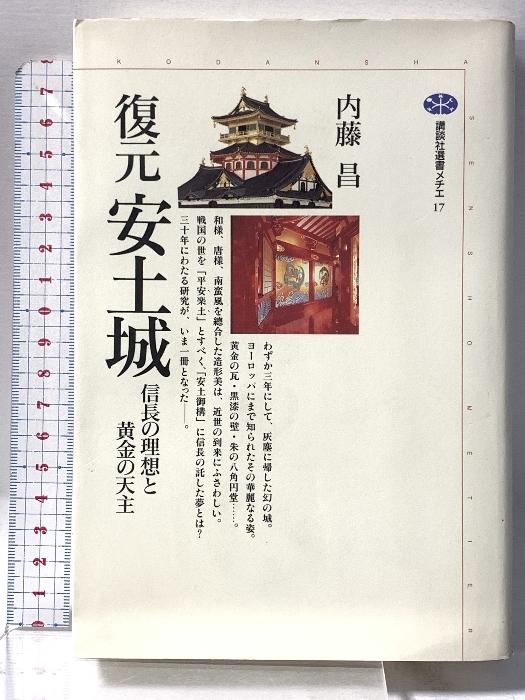 KODANSHA
SENSHO METIER
講談社選書メチエ
17
内藤 昌
復元 安土城
信長の理想と
黄金の天主
わずか三年にして、灰塵に帰した幻の城。
ヨーロッパにまで知られたその華麗なる姿。
黄金の瓦・黒漆の壁・朱の八角円堂……。
和様、唐様、南蛮風を總合した造形美は、近世の到来にふさわしい。
戦国の世を「平安楽土」とすべく、「安土御構」に信長の託した夢とは?
三十年にわたる研究が、いま一冊となった――。
7
6
5
4
3
2
1
0
9
8
7
6
5
4
3
2
1
0